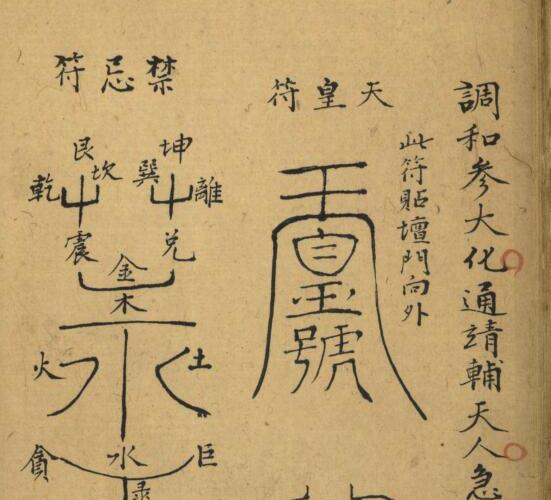 調和參大化通靖輔天人急
天皇符
此符貼壇門向外
玉皇號
禁忌符
坤 艮
離 巽 坎 乾
兌 震
金
木
土 火
巨 水 貪
祿